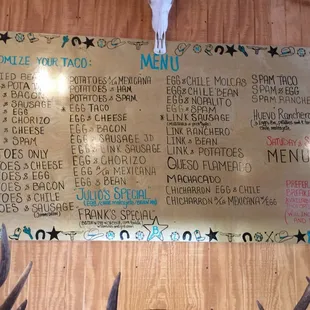 OMIZE YOUR TACO:
MENU
BEAN
& POTA
& BACON
& SAUSAGE
& EGG
& CHORIZO
& CHEESE
& SPAM
TOES ONLY
TOES & CHEESE
TOES & EGG
TOES & BACON
TOES & CHILE
TOES & SAUSAGE
POTATOES & 1/2 MEXICANA
POTATOES & HAM
POTATOES & SPAM
EGG TACO
EGG & CHEESE
EGG & BACON
EGG & SAUSAGE
EGG & LINK SAUSAGE
EGG & CHORIZO
EGG & 1/2 MEXICANA
EGG & BEAN
JULIO'S SPECIAL
FRANK'S SPECIAL
EGG & CHILE MOLCAS
EGG & CHILE BEAN
EGG & NOPALITO
EGG & SPAM
LINK SAUSAGE
LINK RANCHERO
LINK & BEAN
LINK & POTATOES
QUESO FLAMEADO
MACHACADO
CHICHARRON EGG & CHILE
CHICHARRON & 1/2 MEXICANA & EGG
SPAM TACO
SPAM & CHEESE
SPAM RANCHER
HUEVO RANCHERO
SATURDAY & S
MENU